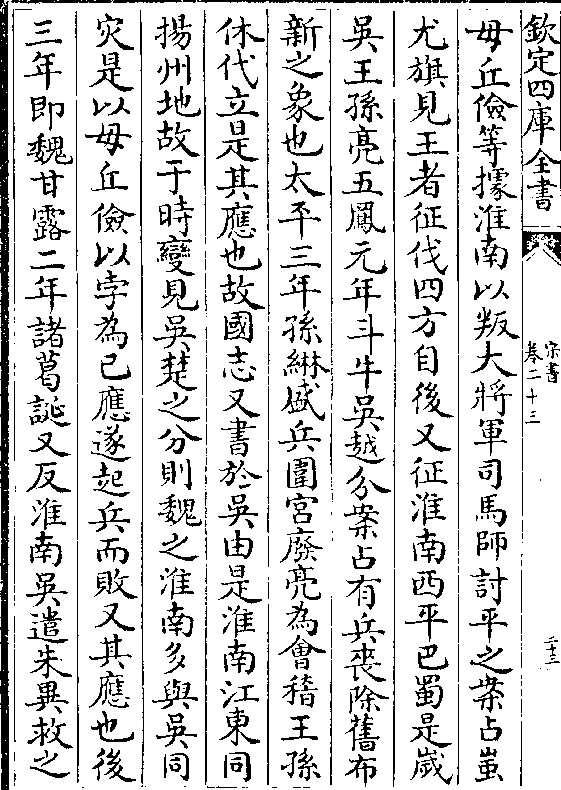 欽定四庫全書
宋書
卷二十三
二十三
毋丘儉等據淮南以叛大將軍司馬師討平之案占蚩
尤旗見王者征伐四方自後又征淮南西平巴蜀是嵗
吳王孫亮五鳳元年斗牛吳越分案占有兵喪除舊布
新之象也太平三年孫綝盛兵圍宮廢亮為會稽王孫
休代立是其應也故國志又書於吳由是淮南江東同
揚州地故于時變見吳楚之分則魏之淮南多與吳同
灾是以毋丘儉以孛為己應遂起兵而敗又其應也後
三年即魏甘露二年諸葛誕又反淮南吳遣朱異救之